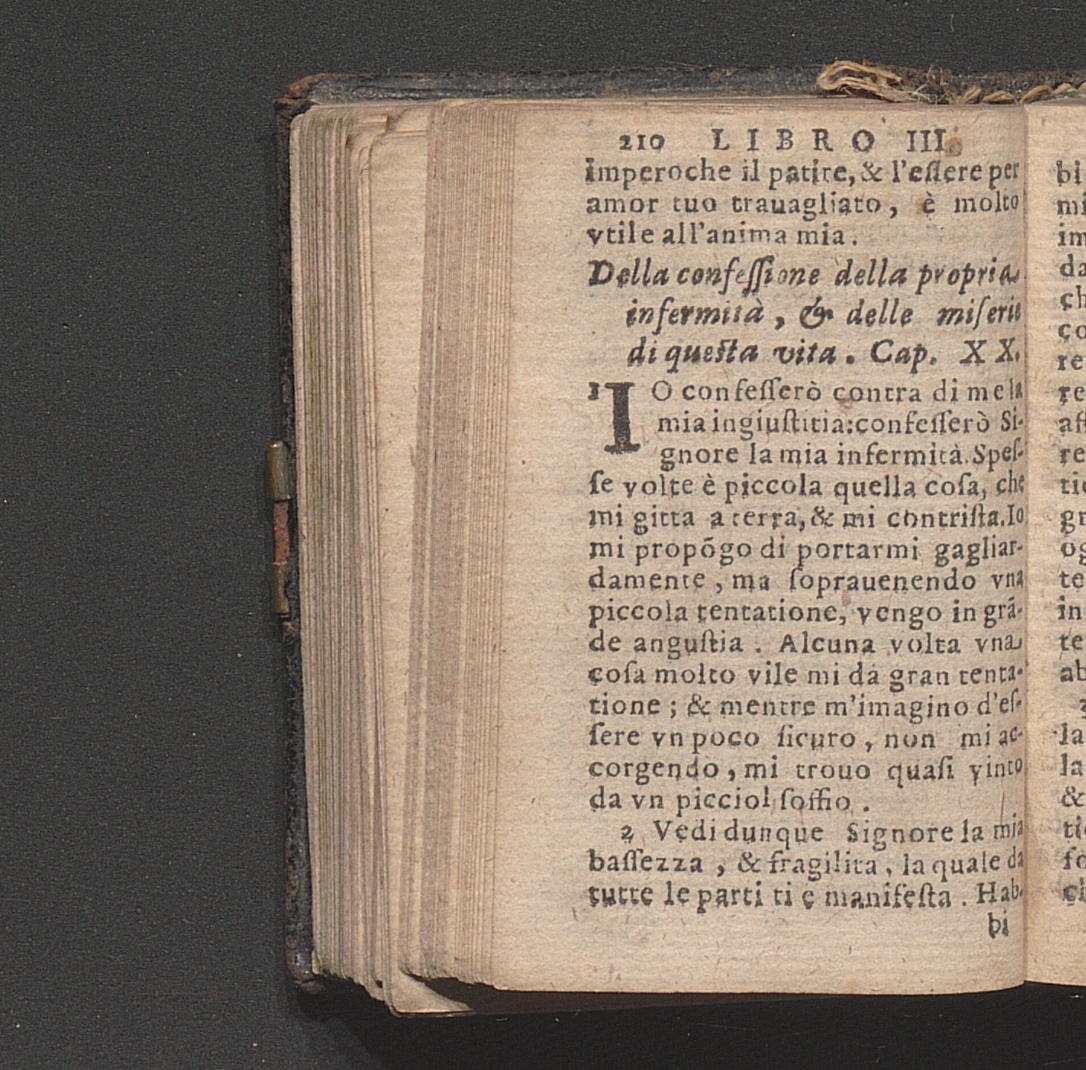 210 LIBRO III.
imperoche il patire, & l'eſſere per
amor tuo trauagliato, è molto
vtile all'anima mia.
Della confeſſione della propria
infermità, & delle miſerie
di queſta vita. Cap. XX.
1 IO confeſſerò contra di me la
mia ingiuſtitia: confeſſerò Si-
gnore la mia infermità. Speſ-
ſe volte è piccola quella coſa, che
mi gitta a terra, & mi contriſta. Io
mi propõgo di portarmi gagliar-
damente, ma ſoprauenendo vna
piccola tentatione, vengo in grã-
de anguſtia. Alcuna volta vna
coſa molto vile mi dà gran tenta-
tione; & mentre m'imagino d'eſ-
ſere vn poco ſicuro, non mi ac-
corgendo, mi trouo quaſi vinto
da vn picciol ſoffio.
2 Vedi dunque Signore la mia
baſſezza, & fragilità, la quale da
tutte le parti ti è manifeſta. Hab-
bi
bi
mi
im
da
ch
co
re
re
aff
re
tio
gr
og
te
in
te
ab
2
la
la
&
tio
ſo
ch